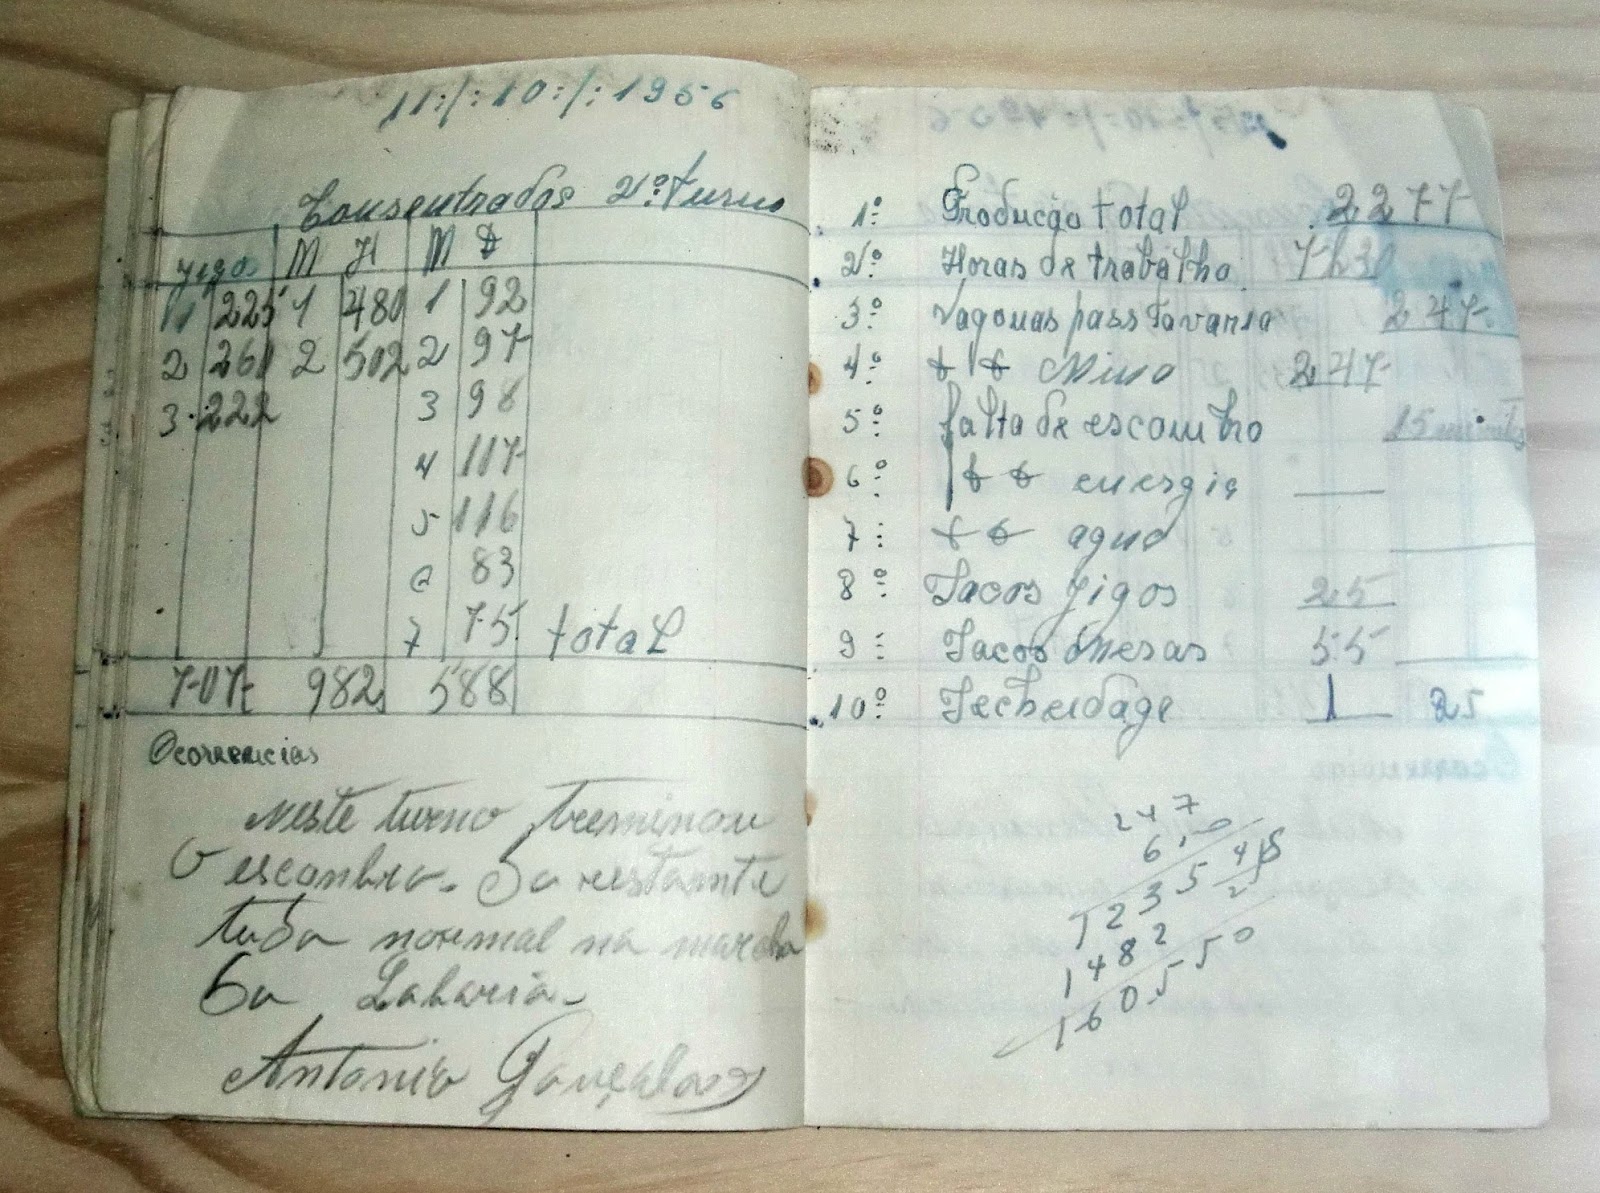 11:/:10:/:1956
Consentrados 2º:turno
Jigos M H M D
1 225 1 480 1 92
2 260 2 502 2 97
3 222 3 98
4 117
5 116
6 83
7 75 total
707 982 588
Ocorrencias
Neste turno terminou
O escombro. Do restante
tudo normal na marcha
da Lavaria.
Antonio Gonçalves
1º Produção total 2277
2º Horas de trabalho 7h30
3º Vagonas pass Lavaria 247
4º " " Mina 247
5º falta de escombro 15 minutos
6º " " energia —
7: " " agua
8º Tacos Jigos 25
9: Tacos Mesas 55
10º 1 25
247
6,50
1235
1482
1605,50